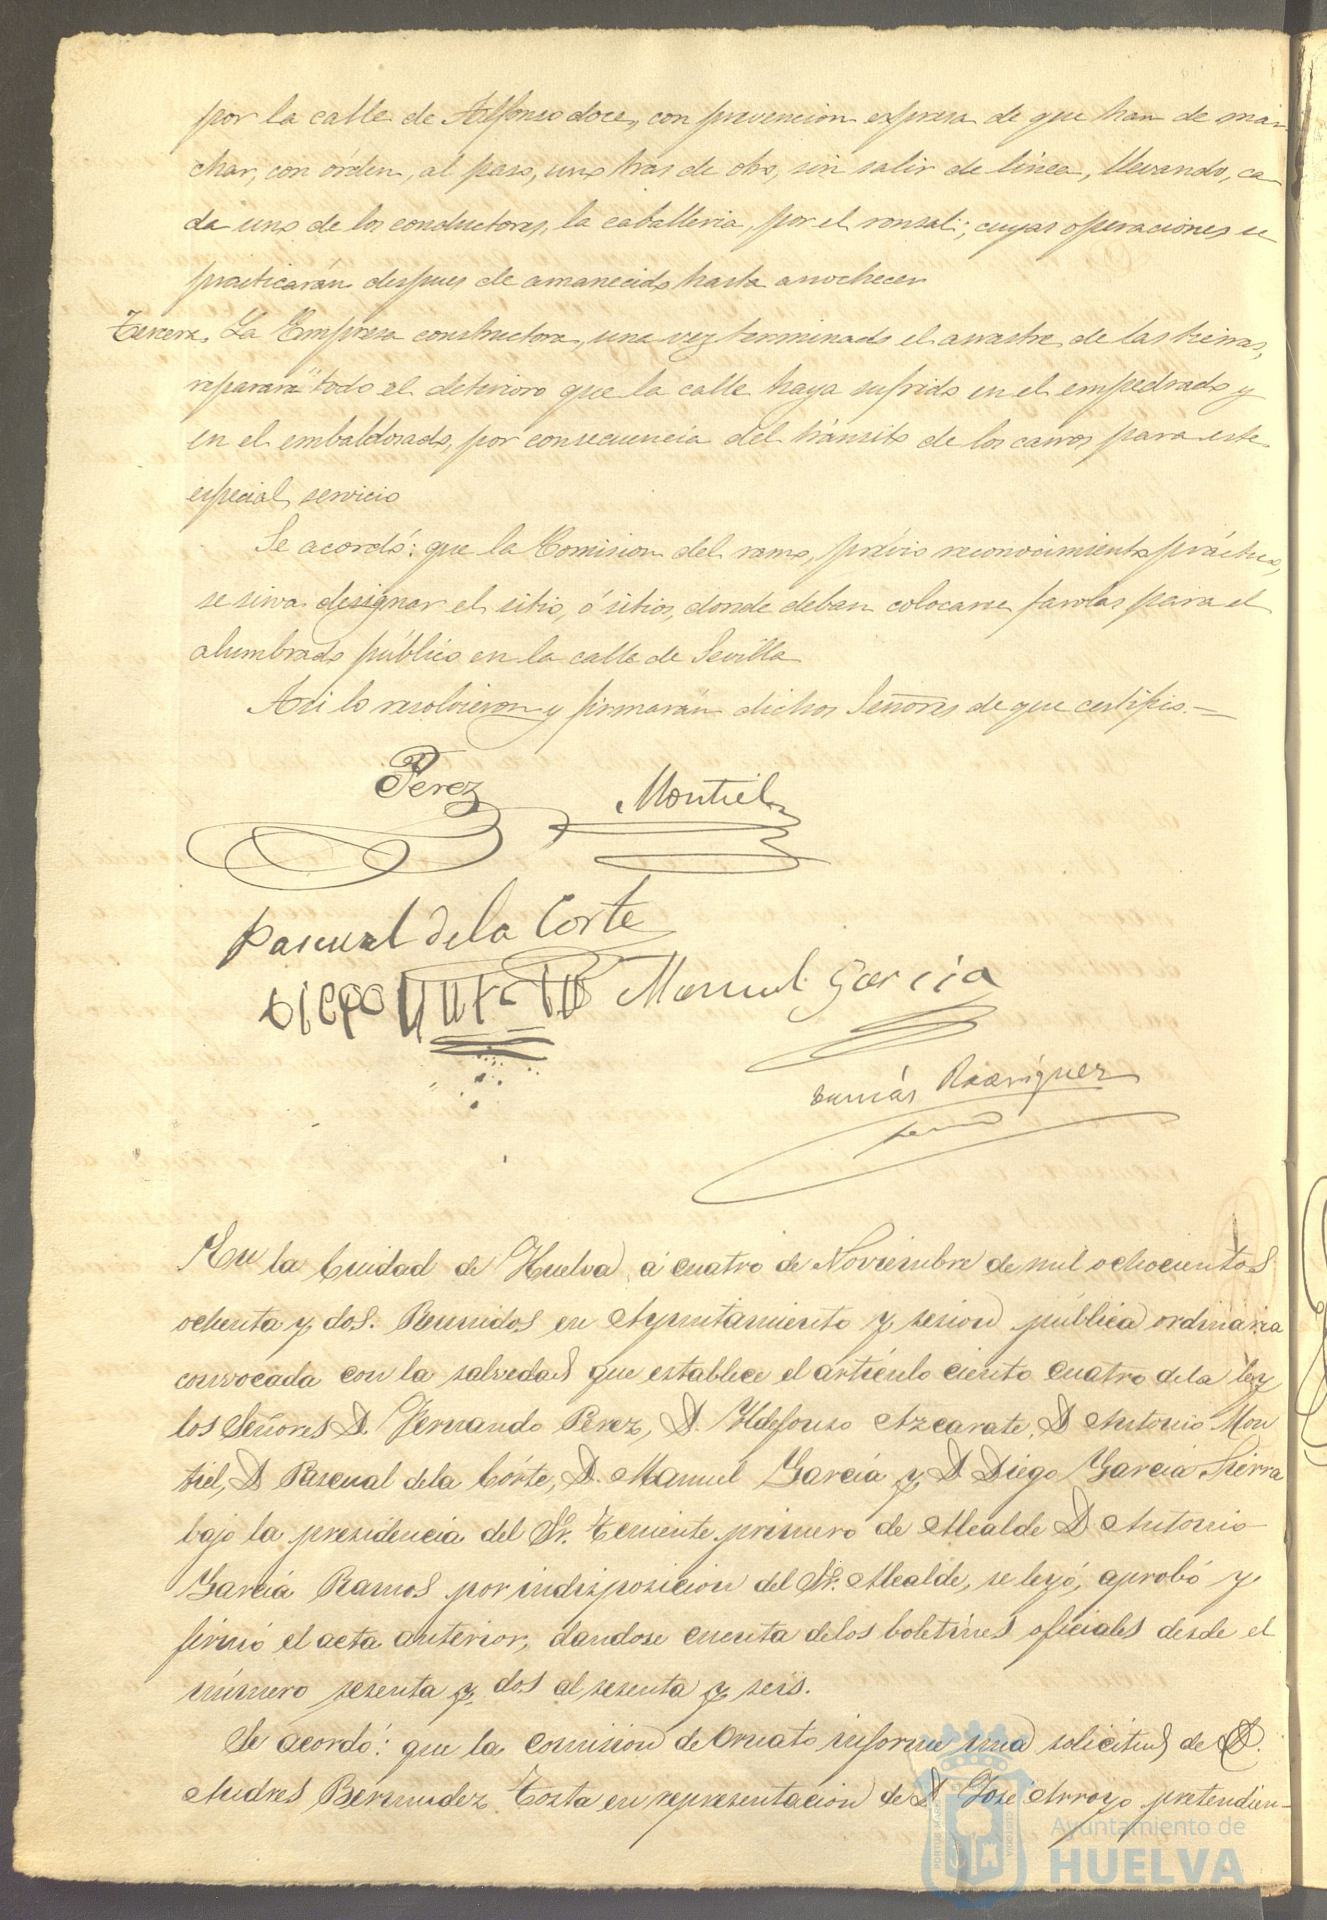 por la calle de Alfonso doce, con prevencion espresa de que han de mar
char, con órden, al paso, uno tras de otro, sin salir de línea, llevando, ca
da uno de los conductores, la caballeria, por el ronsal; cuyas operaciones se
practicarán despues de amanecido hasta anochecer
Tercera. La Empresa constructora, una vez terminado el arrastre de las tierras,
reparará todo el deterioro que la calle haya sufrido en el empedrado y
en el embaldosado, por consecuencia del tránsito de los carros para este
especial servicio
Se acordó: que la Comision del ramo, prévio reconocimiento práctico,
se sirva designar el sitio, ó sitios, donde deban colocarse farolas para el
alumbrado público en la calle de Sevilla
Asi lo resolvieron y firmarán dichos Señores de que certifico.—
Perez
Montiel
Pascual de la Corte
Diego
Manuel Garcia
Tomás Rodriguez
En la Ciudad de Huelva á cuatro de Noviembre de mil ochocientos
ochenta y dos. Reunidos en Ayuntamiento y sesion pública ordinaria
convocada con la salvedad que establece el artículo ciento cuatro de la ley
los Señores D. Fernando Perez, D. Yldefonso Azcarate, D Antonio Mon
tiel, D Pascual de la Córte, D. Manuel García y D Diego García Sierra
bajo la presidencia del Sr. Teniente primero de Alcalde D Antonio
García Ramos por indisposicion del Sr. Alcalde, se leyó, aprobó y
firmó el acta anterior, dandose cuenta de los boletines oficiales desde el
número sesenta y dos al sesenta y seis.
Se acordó: que la comision de Ornato informe una solicitud de D.
Andres Bermudez Tosta en representacion de D José Arroyo pretendien-
Ayuntamiento de
HUELVA